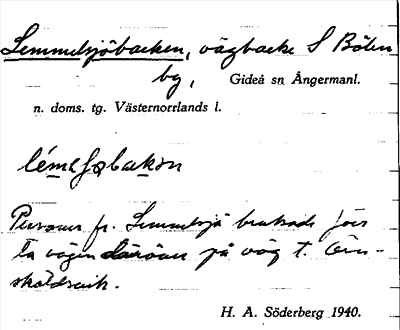 Lemmelsjöbacken, vägbacke S Bölen
by, Gideå sn Ångermanl.
n. doms. tg. Västernorrlands l.
Personer fr. Lemmelsjö brukade förr
ta vägen däröver på väg t. Örn-
sköldsvik.
H. A. Söderberg 1940.